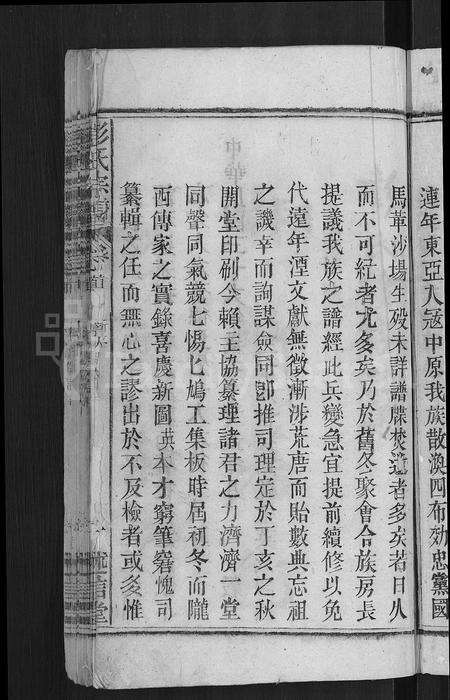 連年東亞人冦中原我族散渙四布効忠黨國
馬革沙場生殁未詳譜牒焚遺者多矣若日久
而不可紀者尤多矣乃於舊冬聚會合族房長
提議我族之譜經此兵變急宜提前續修以免
代遠年湮文獻無徵漸涉荒唐而貽數典忘祖
之譏幸而詢謀僉同卽推司理定於丁亥之秋
開堂印刷今賴主協纂理諸君之力濟濟一堂
同聲同氣競匕惕匕鳩工集板時屆初冬而隴
西傳家之實錄喜慶新圖瑛本才窮筆窘愧司
纂輯之任而無心之謬出於不及檢者或爰惟
彭氏宗譜 卷首
述信堂